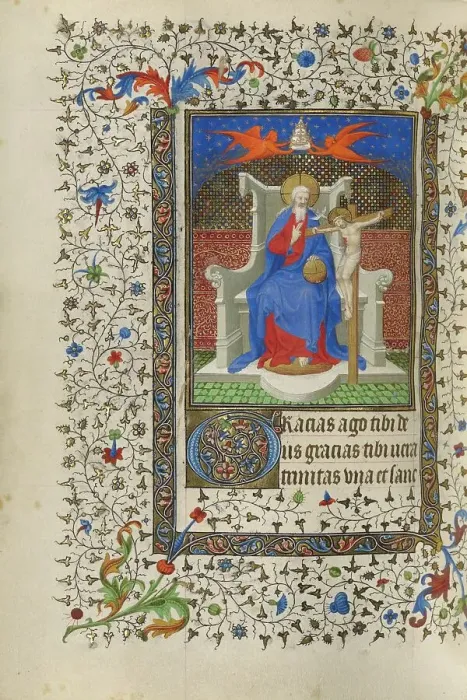 GRacias ago tibi de
us gracias tibi uera
trinitas vna et sanc